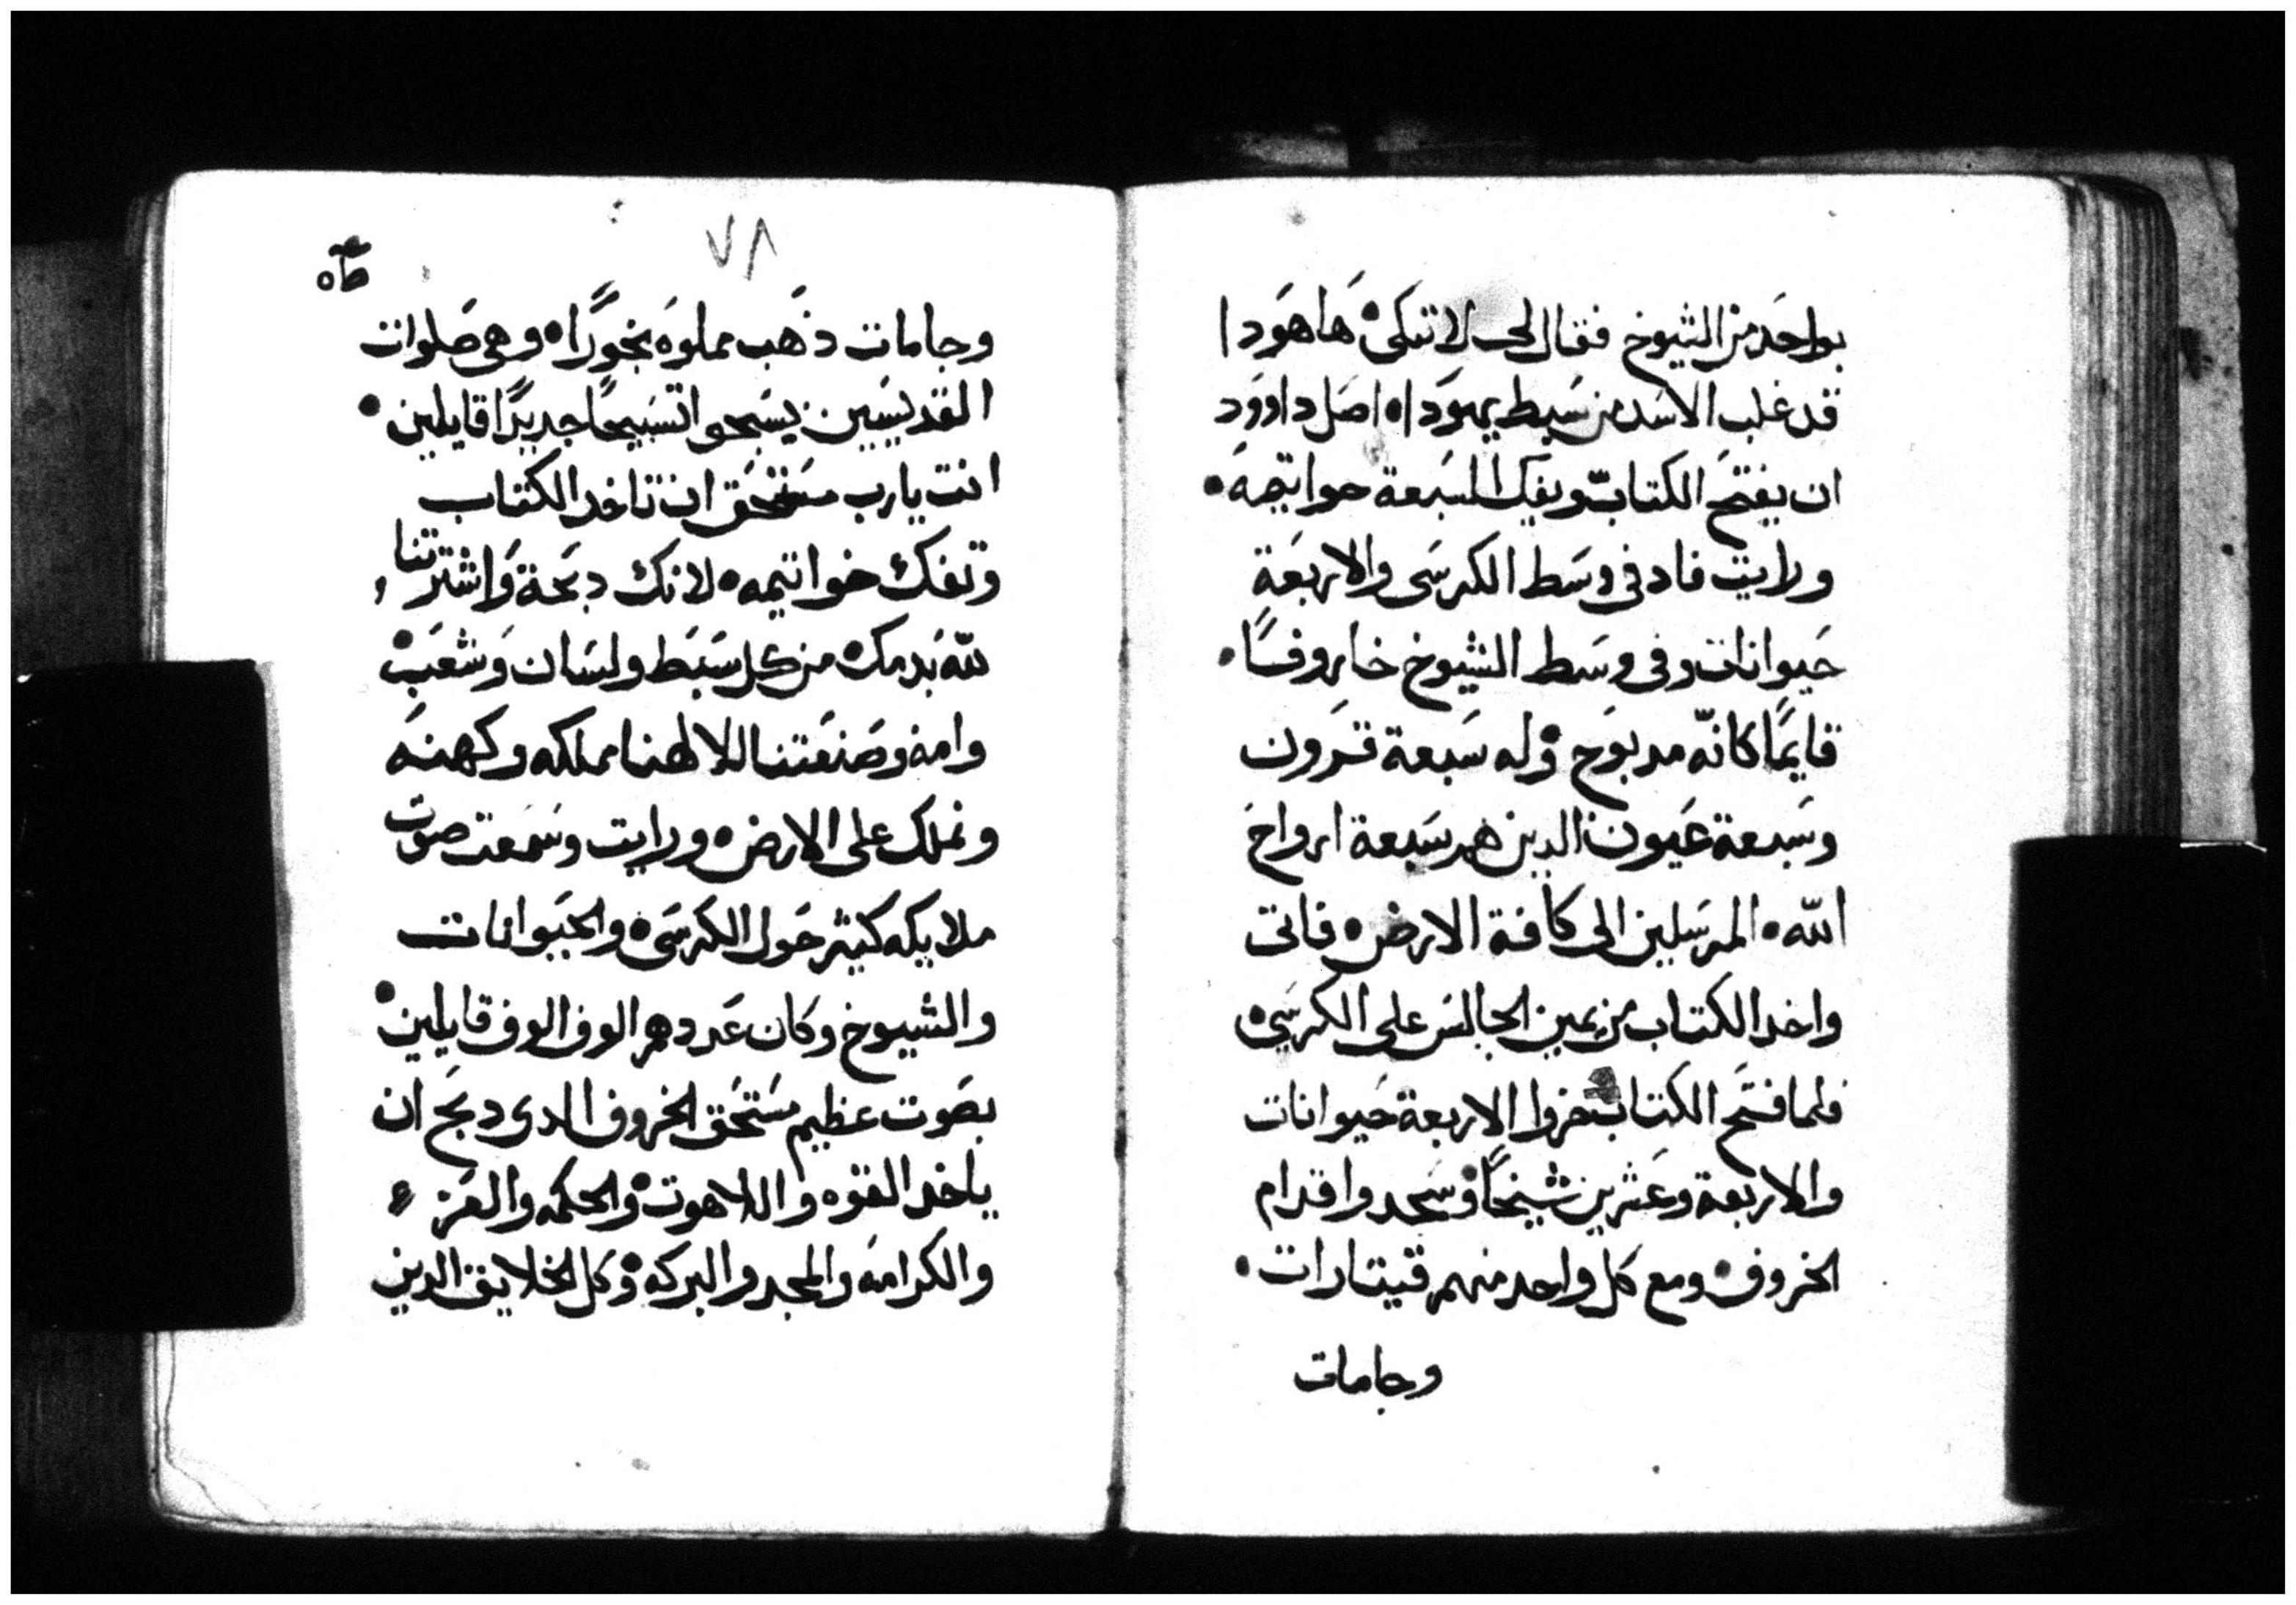 بواحد من الشيوخ فقال لى لا تبكى هَا هوَدا
قد غلب الاسَد من سَبط يهوَدا ه اصَل داوود
ان يفتح الكتاب ويفك السَبعة حواتيمه •
ورايت فاد في وسَط الكرسَى والاربعَة
حَيوانات وفى وسَط الشيوخ خاروفًا •
قايمًا كانّه مدبوَح وله سَبعة قرَون
وسَبعة عَيون الدين هم سَبعة ارواح
اللّه • المرسَلين الى كافة الارض ه فاتى
واخد الكتاب من يمين الجالسَ على الكرسَى ه
فلما فتَح الكتاب خروا الاربعة حَيوانات
والاربعة وعَشرين شيخًا وسَجدوا قدام
الخروف ه ومع كل واحد منهم قيتارات •
وجامات
٧٨
وجامات ذهَب مملوَه بخوَرًا ه وهى صَلوات
القديسَيين يسَبحوا تسَبيحًا جديدًا قايلين •
انت يارب مسَتحَق ان تاخد الكتاب
وتفك خواتيمه ه لانك دبَحة وَاشترتنا
للّه بَدمك من كل سَبَط ولسَان وَشعَب •
وامه وصَنعَتنا لالاهنا مملكه وكهنَه
ونملك على الارض ه ورايت وسَمَعت صوَت
ملايكه كثير حَول الكرسَى ه والحيَوانات
والشيوخ وكان عَددهم الوف الوف قايلين •
بصَوت عظيم مسَتحَق الخروف الدى دبَح ان
ياخد القوه واللاهوت والحكمه والعَز
والكرامه والمجد والبركه وكل الخلايق الدين